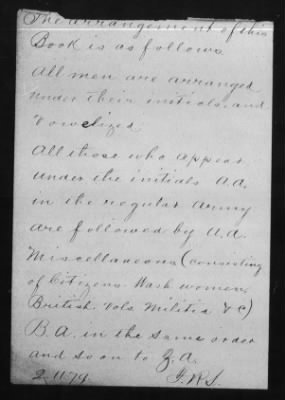 The arrangement of this
Book is as follows
All men are arranged
under their initials, and
Vowelized
All those who appear
under the initials A.A.
in the regular Army
are followed by A.A.
Miscellaneous (consisting
of Citizens Wash women,
British Vols Militia &C)
B.A. in the same order
and so on to Z.A.
2-11-79.